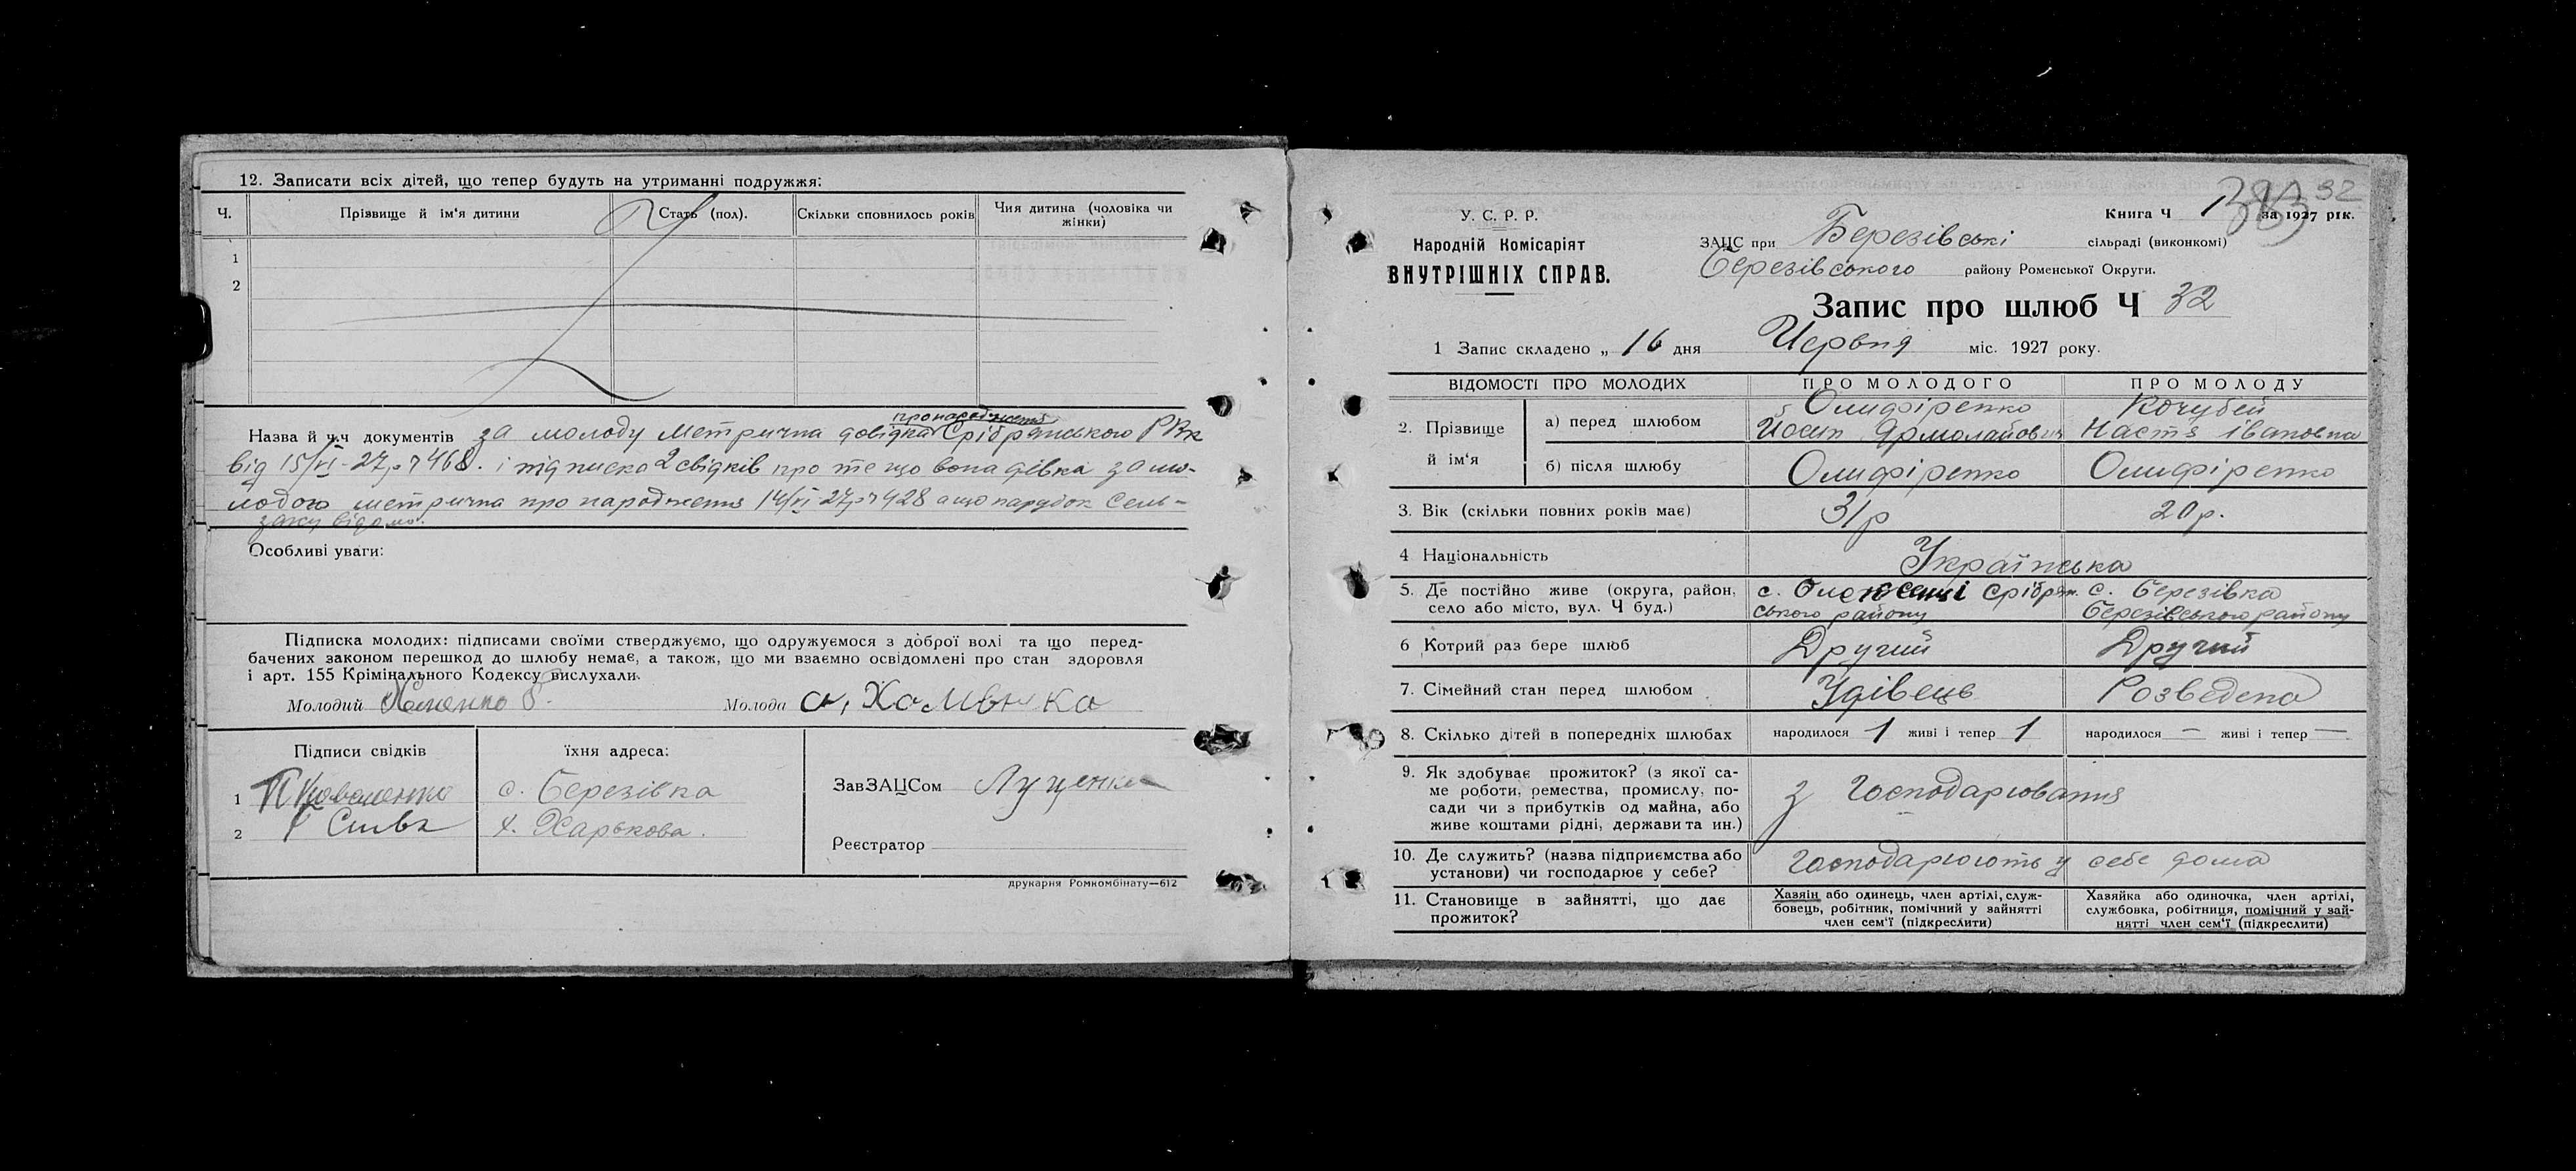 12. Записати всіх дітей, що тепер будуть на утриманні подружжя:
Ч. Прізвище й ім'я дитини Стать (пол). Скільки сповнилось років Чия дитина (чоловіка чи жінки)
1
2
пронародження
Назва й ч.ч документів за молоду метрична довідка Срібрянського РВК
від 15/VI-27р 7468. і підписка 2 свідків про те що вона дівка за мо-
лодого метрична про народження 14/VI 27р 7428 а що парубок Сель-
Особливі уваги:
Підписка молодих: підписами своїми стверджуємо, що одружуємося з доброї волі та що перед-
бачених законом перешкод до шлюбу немає, а також, що ми взаємно освідомлені про стан здоровля
і арт. 155 Крімінального Кодексу вислухали.
Молодий Молода
Підписи свідків їхня адреса:
1 П Коваленко с. Березівка
2 х. Харькова.
ЗавЗАЦСом Луценко
Реєстратор
друкарня Ромкомбінату—612
32
У. С. Р. Р.
Народній Комісаріят
ВНУТРІШНІХ СПРАВ.
Книга Ч 1 за 1927 рік.
ЗАЦС при Березівські сільраді (виконкомі)
Березівського району Роменської Округи.
Запис про шлюб Ч 32
1 Запис складено „ 16 дня Червня міс. 1927 року.
ВІДОМОСТІ ПРО МОЛОДИХ ПРО МОЛОДОГО ПРО МОЛОДУ
2. Прізвище й ім'я
а) перед шлюбом Олифіренко Йосип Ярмолайович Кочубей Настя Івановна
б) після шлюбу Олифіренко Олифіренко
3. Вік (скільки повних років має) 31р 20р.
4 Національність Українська
5. Де постійно живе (округа, район, с. Срібрян. с. Березівка
село або місто, вул. Ч буд.) ського району Березівського району
6 Котрий раз бере шлюб Другий Другий
7. Сімейний стан перед шлюбом Удівець Розведена
8. Скілько дітей в попередніх шлюбах народилося 1 живі і тепер 1 народилося — живі і тепер —
9. Як здобуває прожиток? (з якої са-
ме роботи, ремества, промислу, по-
сади чи з прибутків од майна, або
живе коштами рідні, держави та ин.)
з Господарювання
10. Де служить? (назва підприємства або
установи) чи господарює у себе?
Господарюють у себе дома
11. Становище в зайнятті, що дає
прожиток?
Хазяїн або одинець, член артілі, служ-
бовець, робітник, помічний у зайнятті
член сем'ї (підкреслити)
Хазяйка або одиночка, член артілі,
службовка, робітниця, помічний у зай-
нятті член сем'ї (підкреслити)